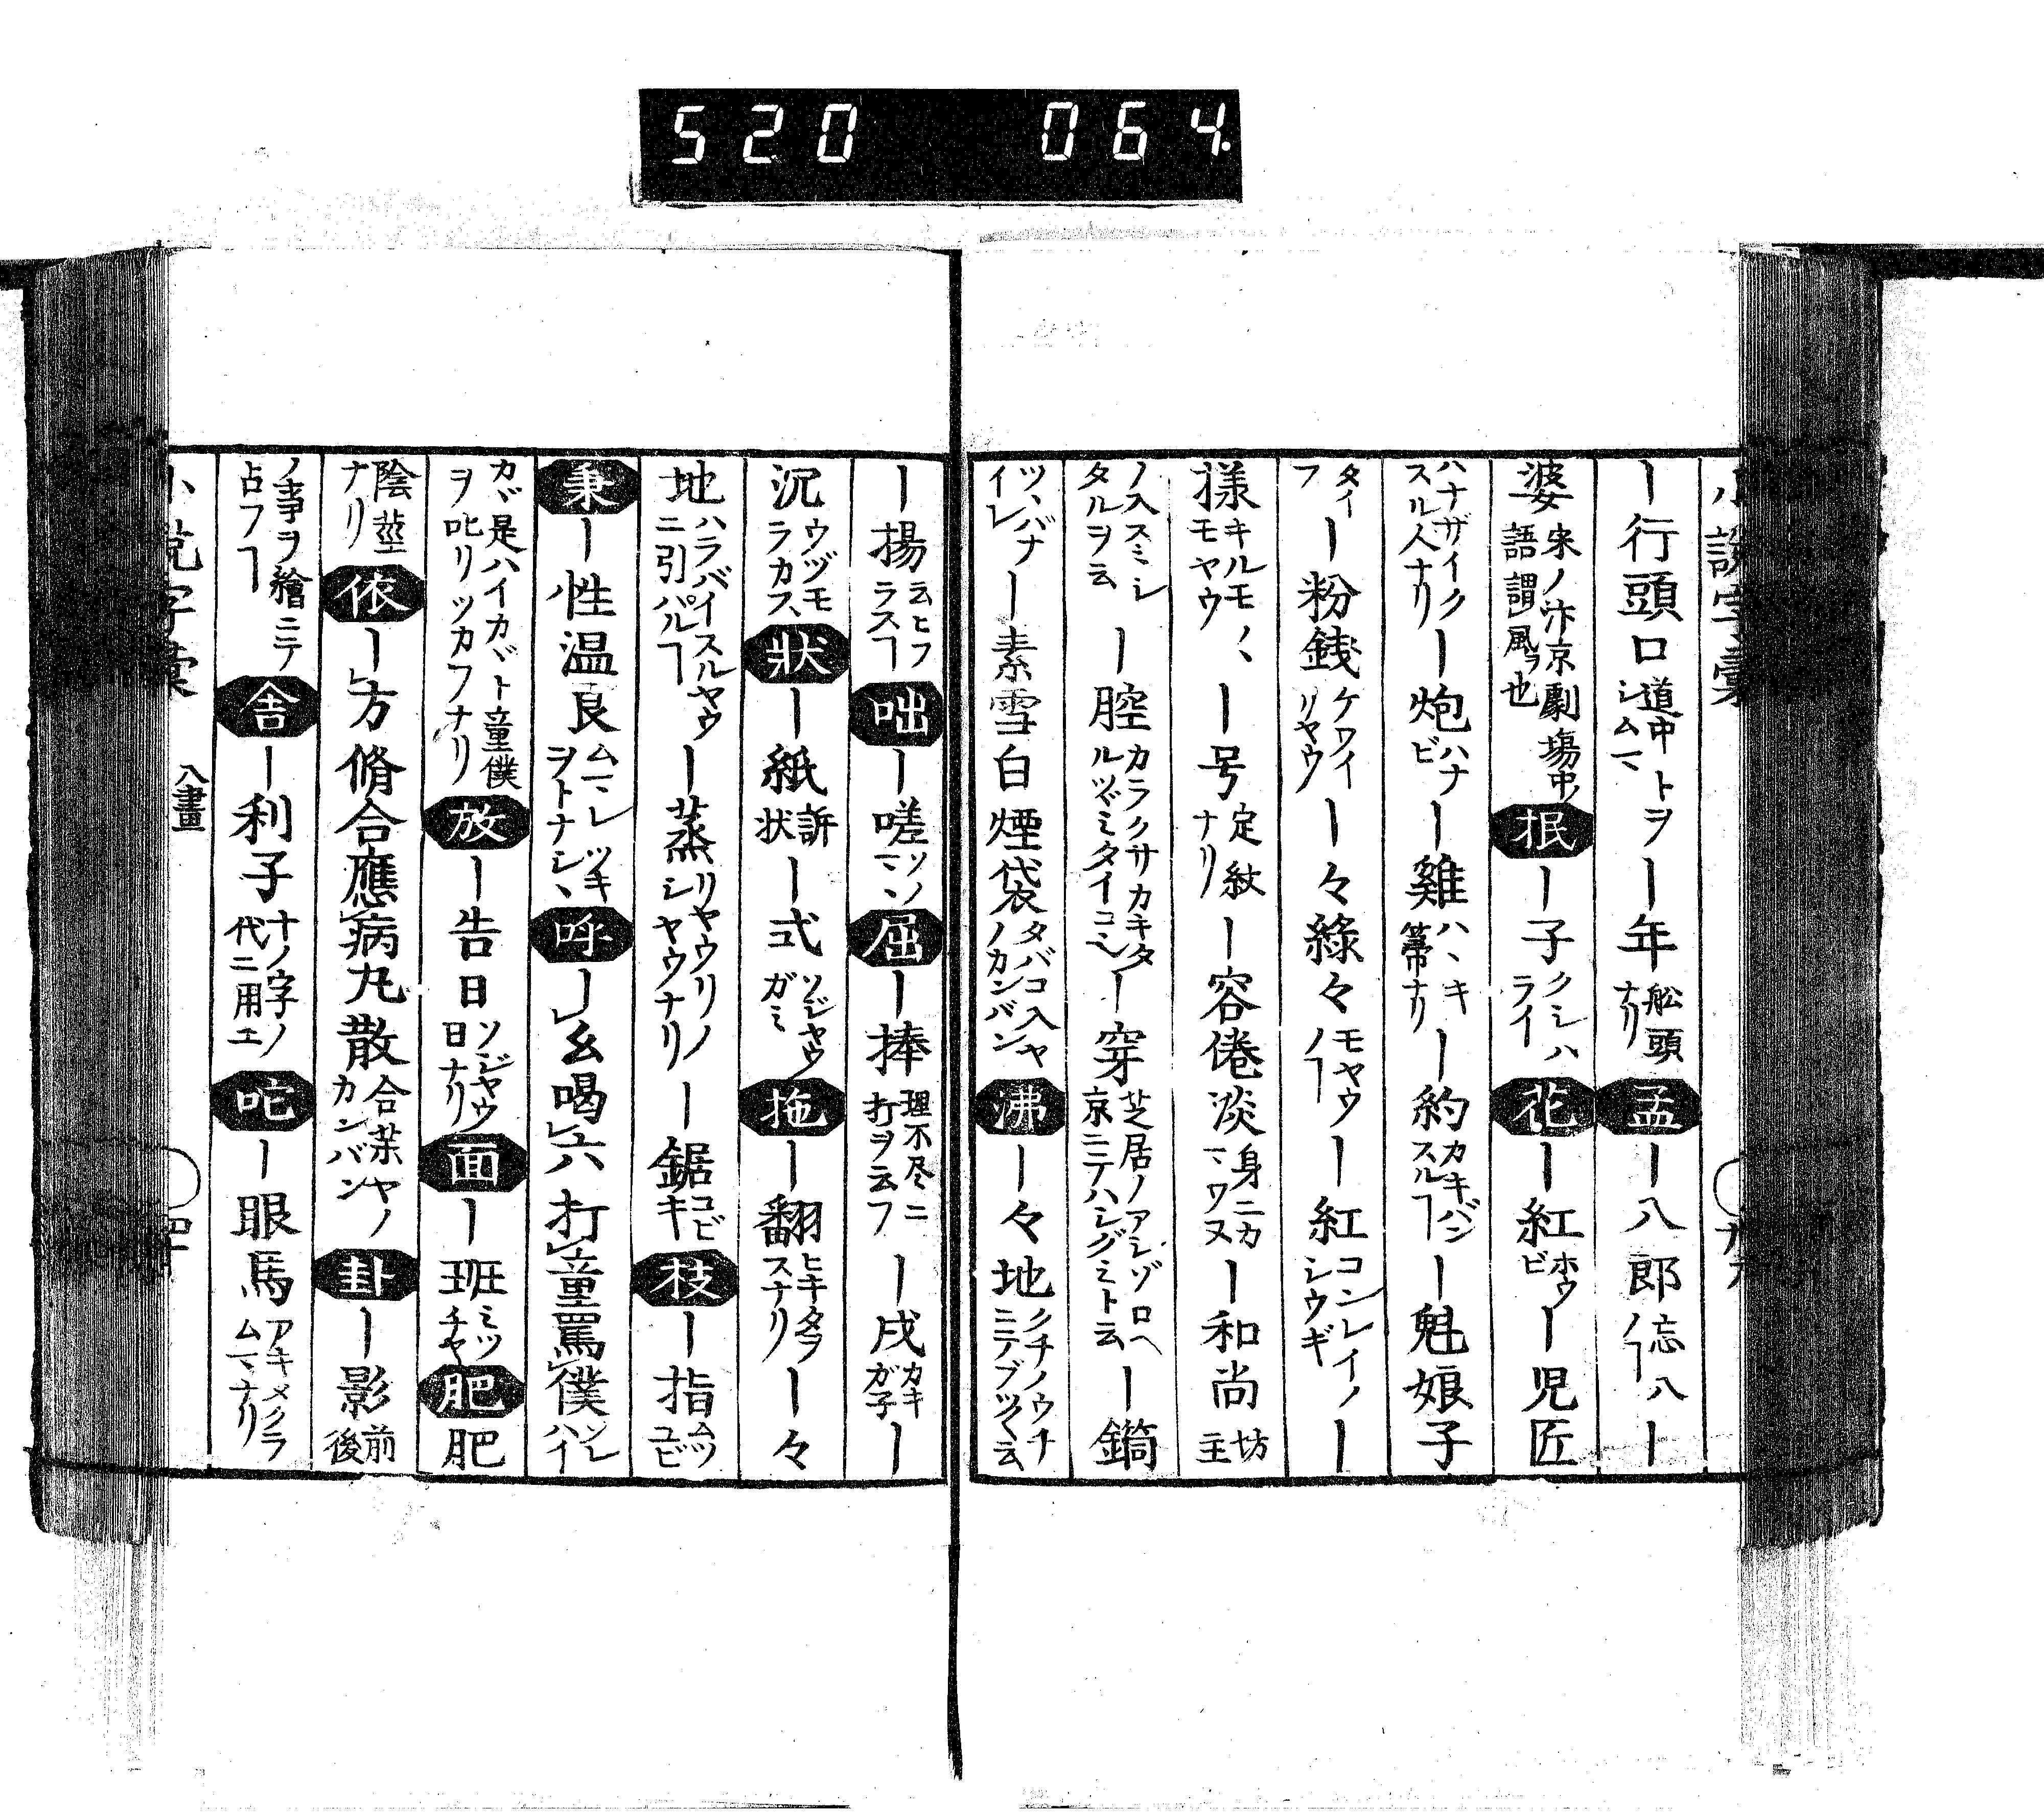 520 064.
小説字彙
ー行頭口道中トヲシムヿー年舩頭ナリ孟ー八郎忘八ノヿー
婆宋ノ汴京劇場中ノ語謂風ヲ也抿ー子クシハライ花ー紅ホウビー児匠
ハナザイクスル人ナリー炮ハナビー雞ハヽキ箒ナリー約カキバンスルヿー魁娘子
タイフー粉銭ケワイリヤウー々綠々モヤウノヿー紅コンレイノシウギー
様キルモノヽモヤウー号定紋ナリー容倦淡身ニカマワヌー和尚坊主
ノ入スミシタルヲ云ー腔カラクサカキタルツヾミタイコー穿芝居ノアシゾロヘ京ニテハシグミト云ー鎬
ツヽバナイレー素雪白煙袋タバコ入ヤノカンバン沸ー々地クチノウチニテブツ〱云
ー揚云ヒフラスヿ咄ー嗟ソノマヽ屈ー捧理不尽ニ打ヲ云フー戌カキガ子ー
沉ウヅモラカス狀ー紙訴状ー式ソジヤウガミ拖ー翻ヒキタヲスナリー々
地ハラバイスルヤウニ引パルヿー蒸リヤウリノシヤウナリー鋸コビキ枝ー指ムツユビ
秉ー性温良ムマレツキヲトナシヽ呼ー幺喝六打童罵僕ソレハイ
カヾ是ハイカヾト童僕ヲ叱リツカフナリ放ー告日ソジヤウ日ナリ面ー班ミツチヤ肥肥
陰莖ナリ依ー方脩合應病丸散合藥ヤノカンバン卦ー影前後
ノ事ヲ繪ニテ占フヿ舎ー利子ナノ字ノ代ニ用エ咜ー眼馬アキメクラムマナリ
小説字彙　八畫